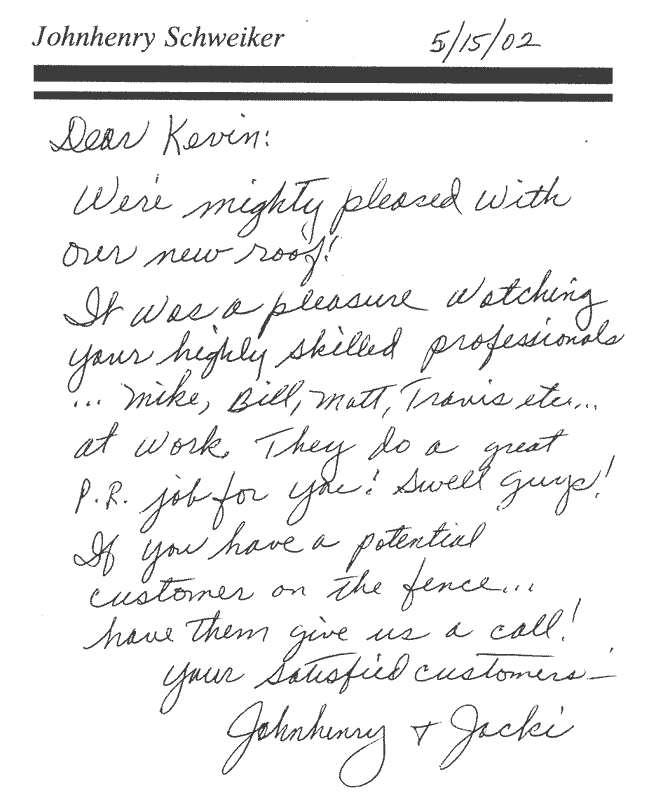 Johnhenry Schweiker 5/15/02
Dear Kevin:
We're mighty pleased with
our new roof!
It was a pleasure watching
your highly skilled professionals
... Mike, Bill, Matt, Travis etc...
at work. They do a great
P.R. job for you! Swell guys!
If you have a potential
customer on the fence...
have them give us a call!
Your satisfied customers—
Johnhenry + Jacki